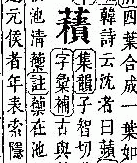 四葉合成一葉如
韓詩云沈者曰蘋
𧂐
集韻子智切
字彙補古與
池清蘌註蘌在池
元侯者年表索隱